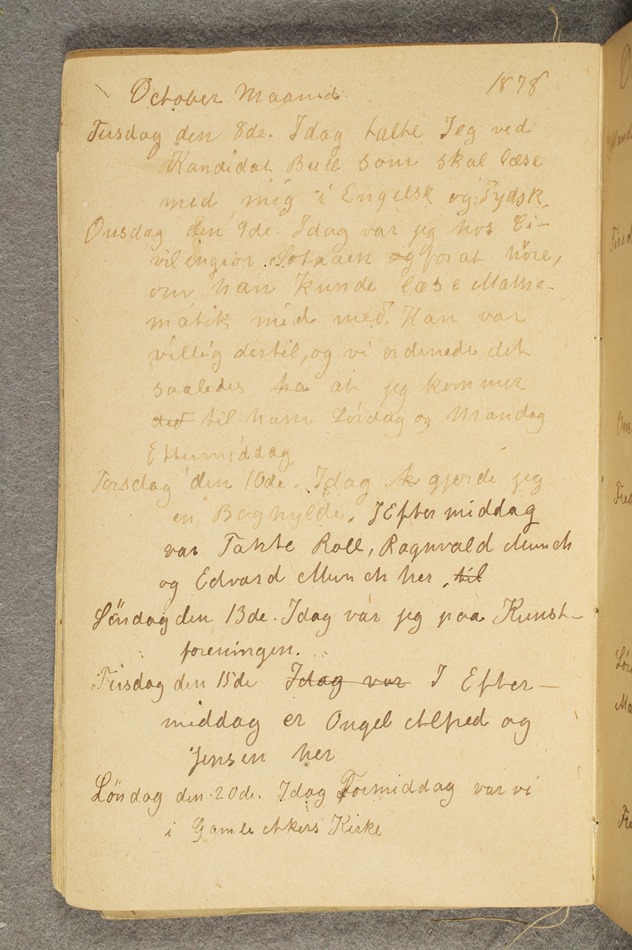 October Maaned. 1878
Tirsdag den 8de. Idag talte Jeg ved
Kandidat Bull som skal læse
med mig i Engelsk og Tydsk.
Onsdag den 9de. Idag var jeg hos Ci-
vilingiør og for at höre,
om han kunde læse Mathe-
matik med med. Han var
villig dertil, og vi ordenede det
saaledes ha at jeg kommer
ded til ham Lørdag og Mandag
Eftermiddag
Torsdag den 10de. Idag gjorde jeg
en Boghylde. I Eftermiddag
var Tante Roll, Ragnvald Munch
og Edvard Munch her, til
Söndag den 13de. Idag var jeg paa Kunst-
foreningen.
Tirsdag den 15de Idag var I Efter-
middag er Ongel Alfred og
Jensen her
Söndag den 20de. Idag Formiddag var vi
i Gamle Akers Kirke